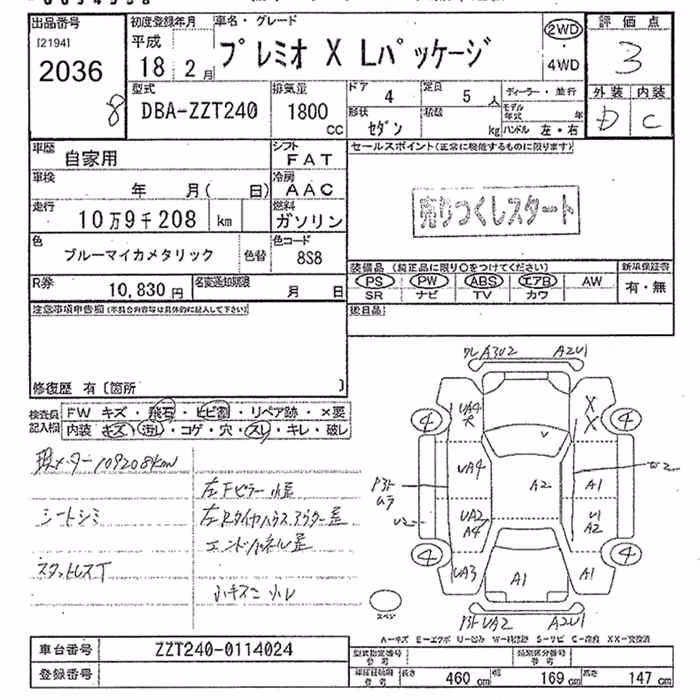 出品番号
[2194]
2036
8
初度登録年月
平成
18 2月
車名・グレード
プレミオ X Lパッケージ
2WD
4WD
評価点
3
外装 内装
D C
型式
DBA-ZZT240
排気量
1800
CC
ドア 4
定員 5 人
形状 セダン
積載 kg
ディーラー・並行
モデル年式 年
ハンドル 左・右
車歴 自家用
シフト FAT
車検 年 月( 日)
冷房 AAC
走行 10万9千208 km
燃料 ガソリン
色 ブルーマイカメタリック
色替
色コード 8S8
R券 10,830円
名変通知期限 月 日
セールスポイント(正常に機能するものに限ります)
売りつくしスタート
装備品 (純正品に限り○をつけてください)
新車保証書
PS PW ABS エアB AW
SR ナビ TV カワ
有・無
後日品
注意事項申告欄(不具合内容等は具体的に記入して下さい)
修復歴 有〔箇所 〕
検査員記入欄
FW キズ・飛石・ヒビ割・リペア跡・×要
内装 キズ・汚レ・コゲ・穴・スレ・キレ・破レ
現メーター109208km
左Fピラー小歪
シートシミ
左Rタイヤハウスアウター歪
エンドパネル歪
スタットレスT
小キズ小凹
ワレ A3U2 A2U1
4 4
UA4
X
X
V
UA4
A2
A1
W2
P3ト
ムラ
U2
UA2
A4
U1
A2
4 4
UA3
A1
A1
スペア
P3ト UA2 A2U1
A-キズ E-エクボ U-凹み W-補修跡 S-サビ C-腐食 XX-交換済
車台番号 ZZT240-0114024
登録番号
型式指定番号 参考
類別区分番号 参考
長さ 460 cm
幅 169 cm
高さ 147 cm